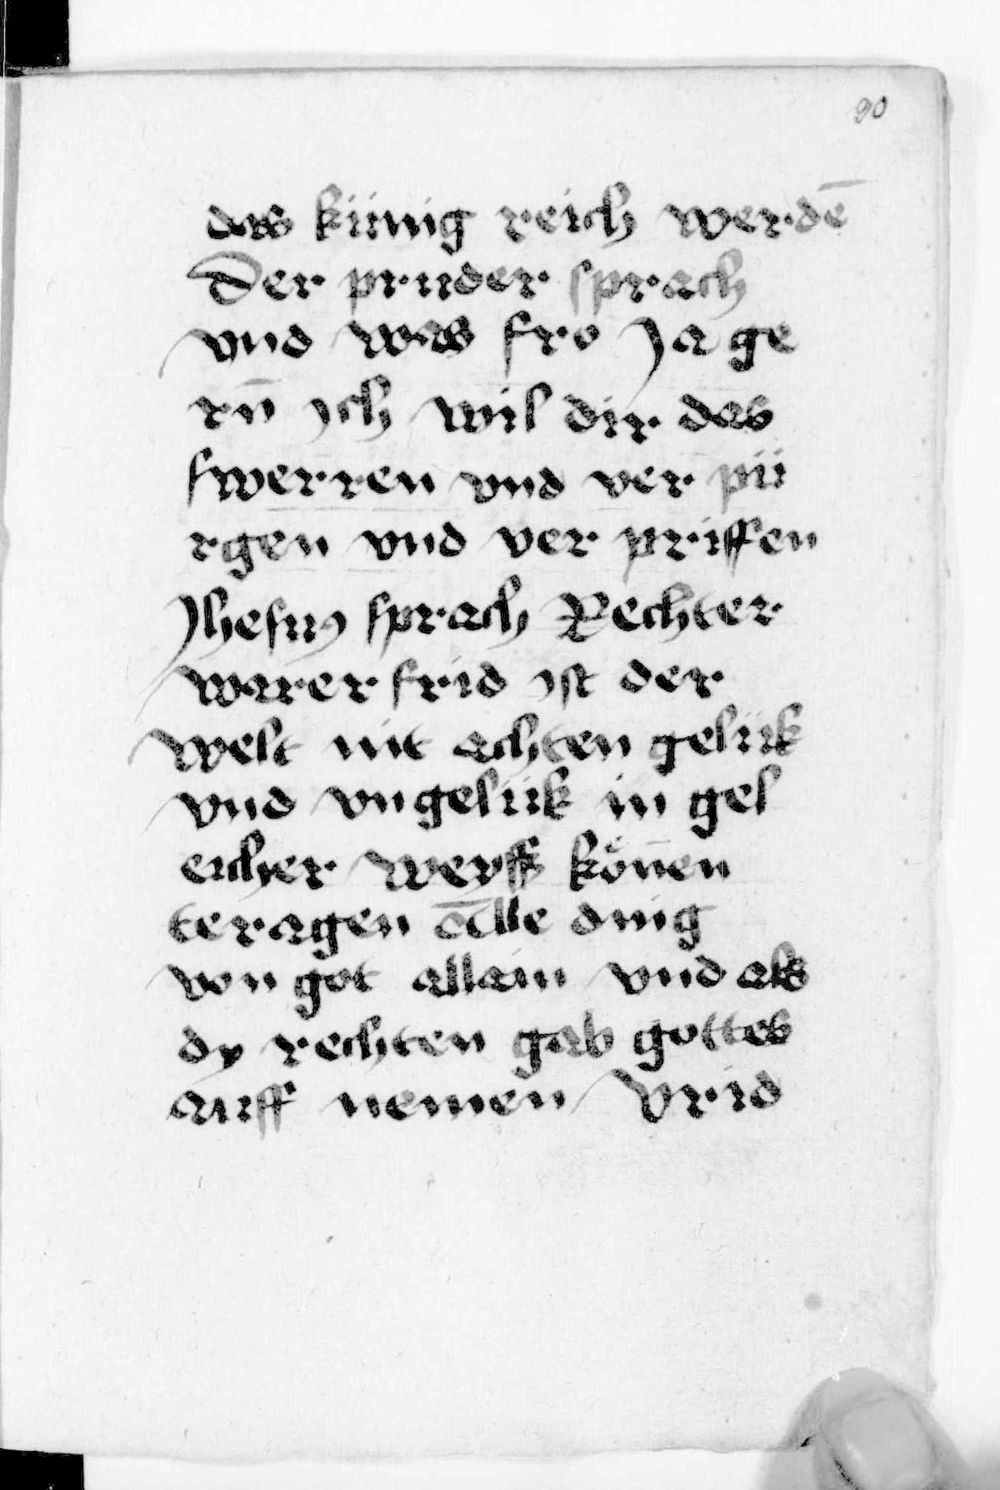 90
das küinig reich werdē
Der pruder sprach
vnd was fro Ja ge
rn̄ ich wil dir das
swerren vnd ver pü
rgen vnd ver priffen
Jhesus sprach Rechter
warer frid ist der
welt nit achten gelük
vnd vngelük in gel
eicher weyss kön̄en
teragen alle ding
von got allain vnd als
dy rechten gab gottes
auff nemen Vrid